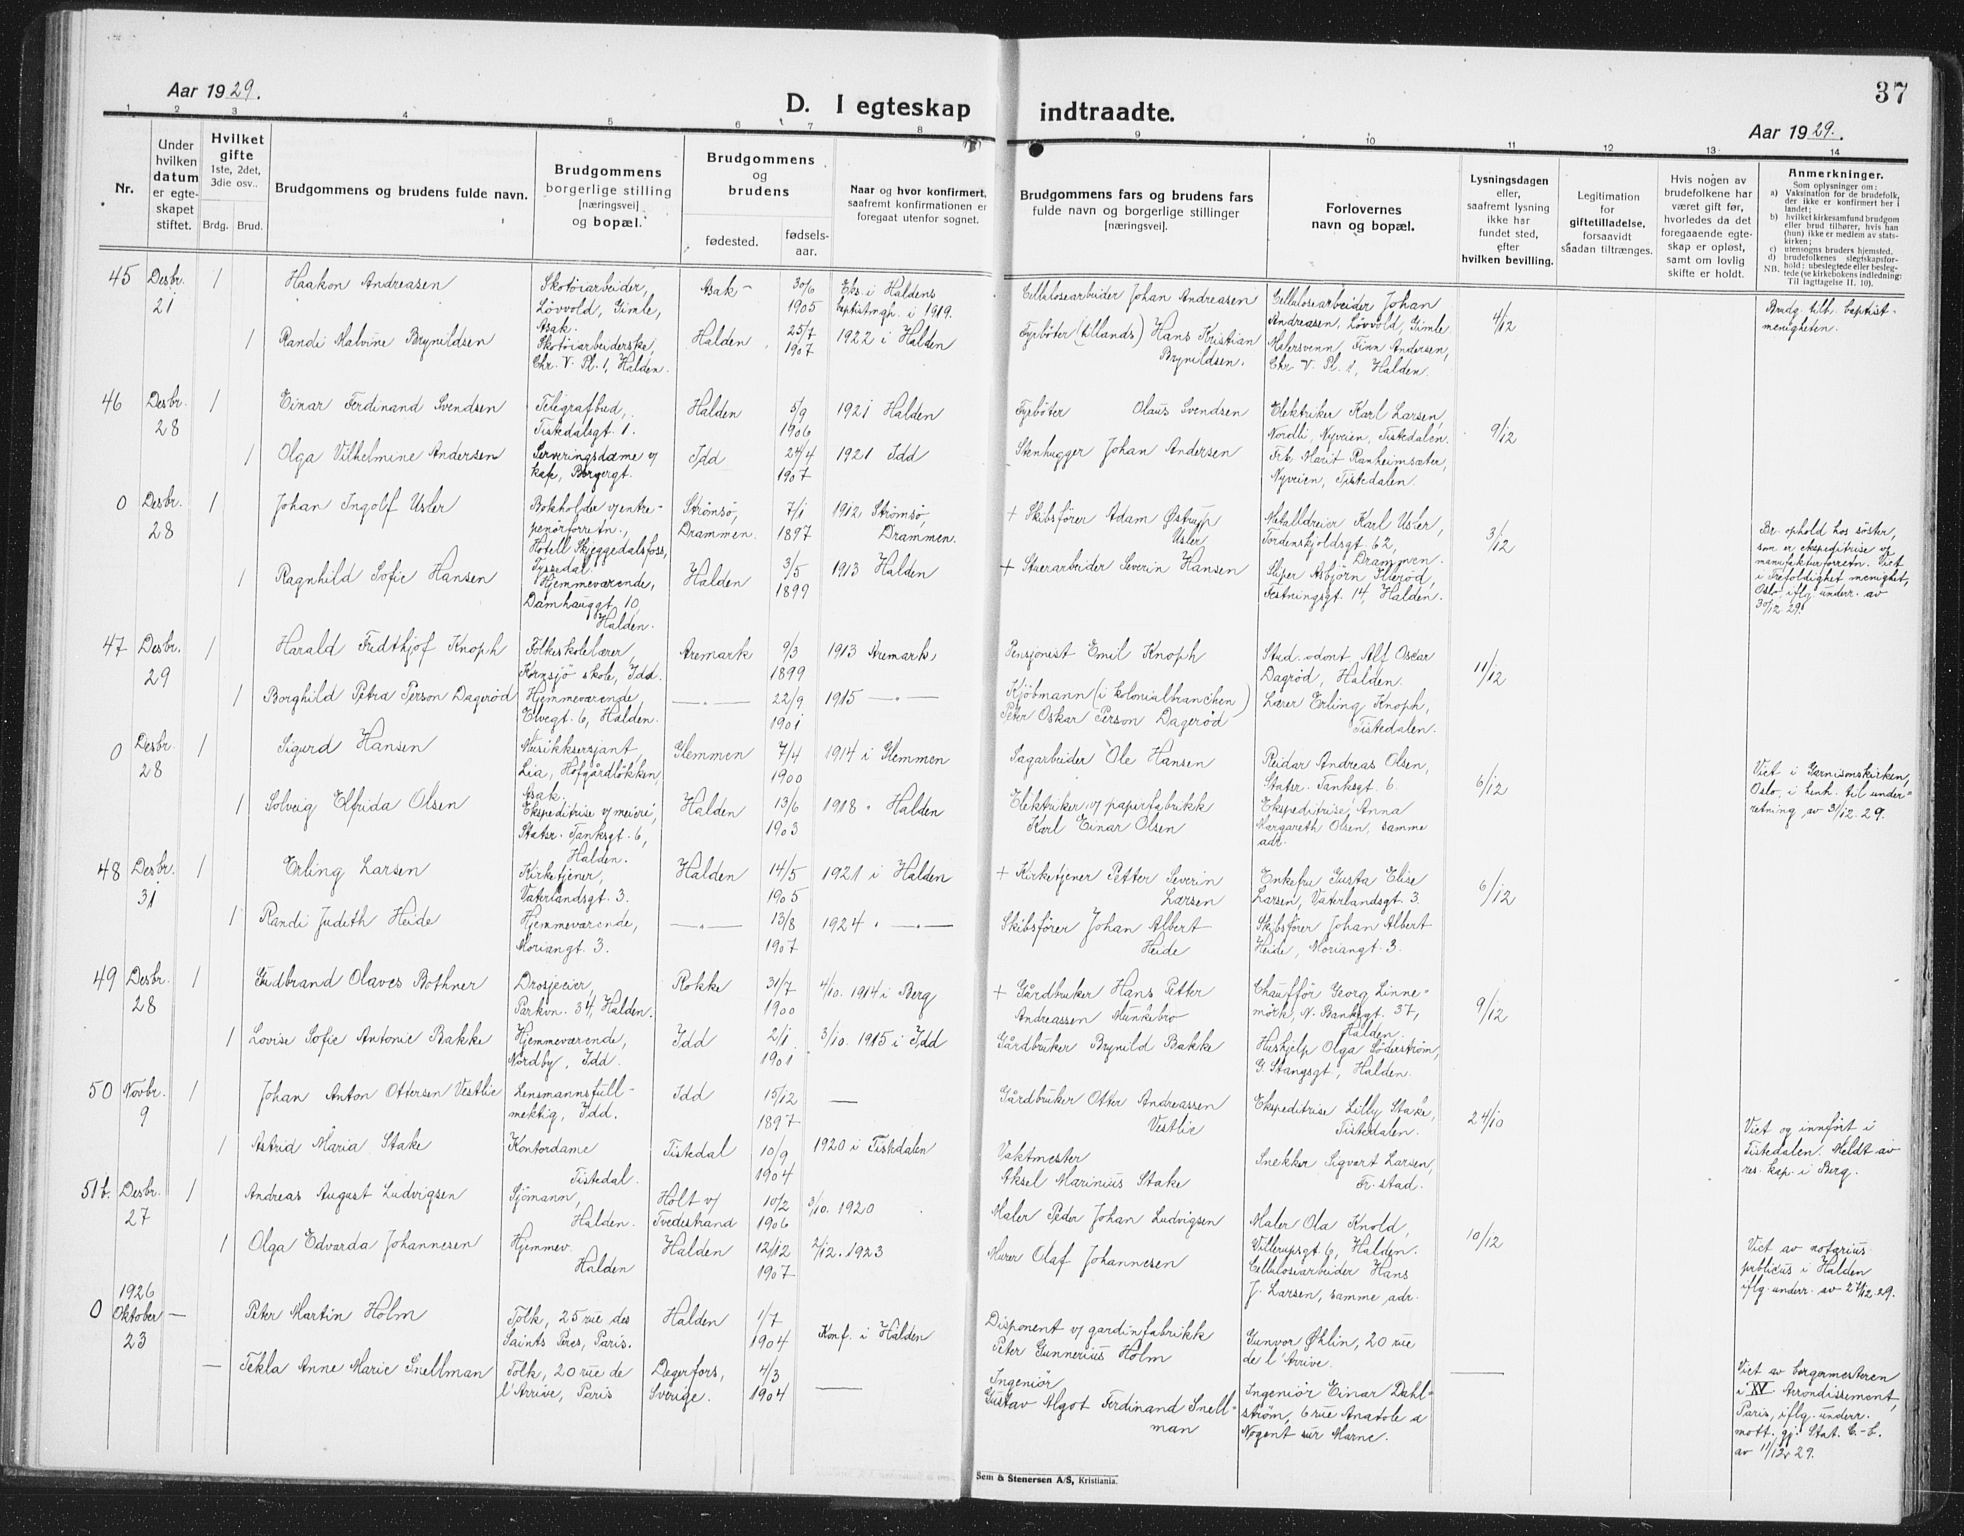 Aar 1929.
D. I egteskap indtraadte.
37
Aar 1929.
1 2 3 4 5 6 7 8 9 10 11 12 13 14
Nr.
Under hvilken datum er egteskapet stiftet.
Hvilket gifte
1ste, 2det, 3die osv..
Brdg. Brud.
Brudgommens og brudens fulde navn.
Brudgommens borgerlige stilling [næringsvei] og bopæl.
Brudgommens og brudens
fødested. fødsels-aar.
Naar og hvor konfirmert, saafremt konfirmationen er foregaat utenfor sognet.
Brudgommens fars og brudens fars fulde navn og borgerlige stillinger [næringsvei].
Forlovernes navn og bopæl.
Lysningsdagen eller, saafremt lysning ikke har fundet sted, efter hvilken bevilling.
Legitimation for giftetilladelse, forsaavidt saadan tiltrænges.
Hvis nogen av brudefolkene har været gift før, hvorledes da det foregaaende egteskap er opløst, samt om lovlig skifte er holdt.
Anmerkninger.
Som oplysninger om:
a) Vaksination for de brudefolk, der ikke er konfirmert her i landet;
b) hvilket kirkesamfund brudgom eller brud tilhører, hvis han (hun) ikke er medlem av statskirken;
c) utensogns bruders hjemsted,
d) brudefolkenes slegtskapsforhold: ubeslegtede eller beslegtede (se kirkebokens indledning:
NB. Til iagttagelse II. 10).
45 Desbr. 21
1 Haakon Andreasen
Skotøiarbeider, Løvvold, Gimle, Asak.
Asak 30/6 1905
Eks. i Haldens baptistmgh. i 1919.
Cellulosearbeider Johan Andreasen
Cellulosearbeider Johan Andreasen, Løvvold, Gimle
4/12
Brudg. tilh. baptist-menigheten.
1 Randi Malvine Brynildsen
Skotøiarbeiderske, Chr. V. Pl. 1, Halden.
Halden 25/7 1907
1922 i Halden
Fyrbøter (tillands) Hans Kristian Brynildsen.
Malersvenn Finn Andersen, Chr. V. Pl. 1, Halden.
46 Desbr. 28
1 Einar Ferdinand Svendsen
Telegrafbud, Tistedalsgt. 1.
Halden 5/9 1906
1921 Halden
Fyrbøter Olaus Svendsen
Elektriker Karl Larsen, Nordli, Nyveien, Tistedalen.
9/12
1 Olga Vilhelmine Andersen
Serveringsdame v/ kafe, Borgergt.
Idd 24/4 1907
1921 Idd
Stenhugger Johan Andersen
Frk. Marit Ranheimsæter, Nyveien, Tistedalen.
0 Desbr. 28
1 Johan Ingolf Usler
Bokholder v/ entre-penørforretn., Hotell Skjeggedalsfoss, Tyssedal
Strømsø, Drammen. 7/1 1897
1912 Strømsø, Drammen.
+ Skibsfører Adam Østrup Usler
Metalldreier Karl Usler, Tordenskjoldsgt 62, Drammen.
3/12
Br. ophold hos søster, som er ekspeditrise v/ manufakturforretn. Viet i Trefoldighet menighet, Oslo, iflg. underr. av 30/12 29.
1 Ragnhild Sofie Hansen
Hjemmeværende, Damhauggt. 10, Halden.
Halden 3/5 1899
1913 Halden
+ Stuerarbeider Severin Hansen
Sliper Asbjørn Klerød, Festningsgt. 14, Halden.
47 Desbr. 29
1 Harald Fridthjof Knoph
Folkeskolelærer, Kornsjø skole, Idd.
Aremark 9/3 1899
1913 Aremark
Pensjonist Emil Knoph
Stud. odont. Alf Oscar Dagrød, Halden.
11/12
1 Borghild Petra Person Dagerød
Hjemmeværende, Elvegt. 6, Halden.
—„— 22/9 1901
1915 —„—
Kjøbmann (i kolonialbranchen) Peter Oskar Person Dagerød
Lærer Erling Knoph, Tistedalen.
0 Desbr. 28
1 Sigurd Hansen
Musikksersjant, Lia, Hofgårdløkken, Asak.
Glemmen 7/4 1900
1914 i Glemmen
Sagarbeider Ole Hansen
Reidar Andreas Olsen, Stater. Tanksgt. 6.
6/12
Viet i Garnisonskirken, Oslo, i henh. til under-retning av 31/12 29.
1 Solveig Elfrida Olsen
Ekspeditrise v/ meieri, Statsr. Tanksgt. 6, Halden.
Halden 13/6 1903
1918 „ Halden
Elektriker v/ papirfabrikk Karl Einar Olsen
Ekspeditrise Anna Margareth Olsen, samme adr.
48 Desbr. 31
1 Erling Larsen
Kirketjener, Vaterlandsgt. 3.
Halden 14/5 1905
1921 i Halden
+ Kirketjener Petter Severin Larsen
Enkefru Gusta Elise Larsen, Vaterlandsgt 3.
6/12
1 Randi Judith Heide
Hjemmeværende, Moriangt. 3.
—„— 13/8 1907
1924 „ —„—
Skibsfører Johan Albert Heide
Skibsfører Johan Albert Heide, Moriangt. 3.
49 Desbr. 28
1 Gudbrand Olaves Bothner
Drosjeeier, Parkvn. 34, Halden.
Rokke 31/7 1900
4/10. 1914 i Berg
+ Gårdbruker Hans Petter Andreassen Munkebro
Chauffør Georg Linne-mörk, N. Bankgt. 37, Halden.
9/12
1 Lovise Sofie Antonie Bakke
Hjemmeværende, Nordby, Idd.
Idd 2/1 1901
3/10. 1915 i Idd
Gårdbruker Brynild Bakke
Hushjelp Olga Söderström, G. Stangsgt, Halden.
50 Novbr. 9
1 Johan Anton Ottersen Vestlie
Lensmannsfull-mektig, Idd.
Idd 15/12 1897
—
Gårdbruker Otter Andreassen Vestlie
Ekspeditrise Lilly Stake, Tistedalen.
24/10
Viet og innført i Tistedalen. Meldt av res. kap. i Berg.
1 Astrid Maria Stake
Kontordame Tistedal.
Tistedal 10/9 1904
1920 i Tistedalen
Vaktmester Aksel Marinius Stake
Snekker Sigvart Larsen, Fr.stad.
51 b. Desbr. 27
1 Andreas August Ludvigsen
Sjömann, Halden.
Holt v/ Tvedestrand 10/2 1906
3/10. 1920
Maler Peder Johan Ludvigsen
Maler Ola Knold, Villerupsgt 6, Halden.
10/12
Viet av notarius publicus i Halden iflg. underr. av 27/12 29.
1 Olga Edvarda Johannesen
Hjemmev. Halden
Halden 12/12 1907
2/12. 1923
Murer Olaf Johannesen
Cellulosearbeider Hans J. Larsen, samme adr.
0 1926 Oktober 23
— Peter Martin Holm
Tolk, 25 rue des Saints Peres, Paris.
Halden 1/7 1904
Konf. i Halden
Disponent v/ gardinfabrikk Peter Gunnerius Holm
Gunvor Øhlin, 20 rue de l'Arrive.
—
Viet av borgermesteren i XV Arrondissement, Paris, iflg. underr. mott. gj. Stat. C.-b. av 11/12 29.
— Tekla Anne Marie Snellman
Tolk, 20 rue de l'Arrive, Paris
Degerfors, Sverige. 4/3 1904
—
Ingeniør Gustav Algot Ferdinand Snell-man
Ingeniør Einar Dahl-strøm, 6 rue Anatole a Nogent sur Marne.
Sem & Stenersen A/S, Kristiania.